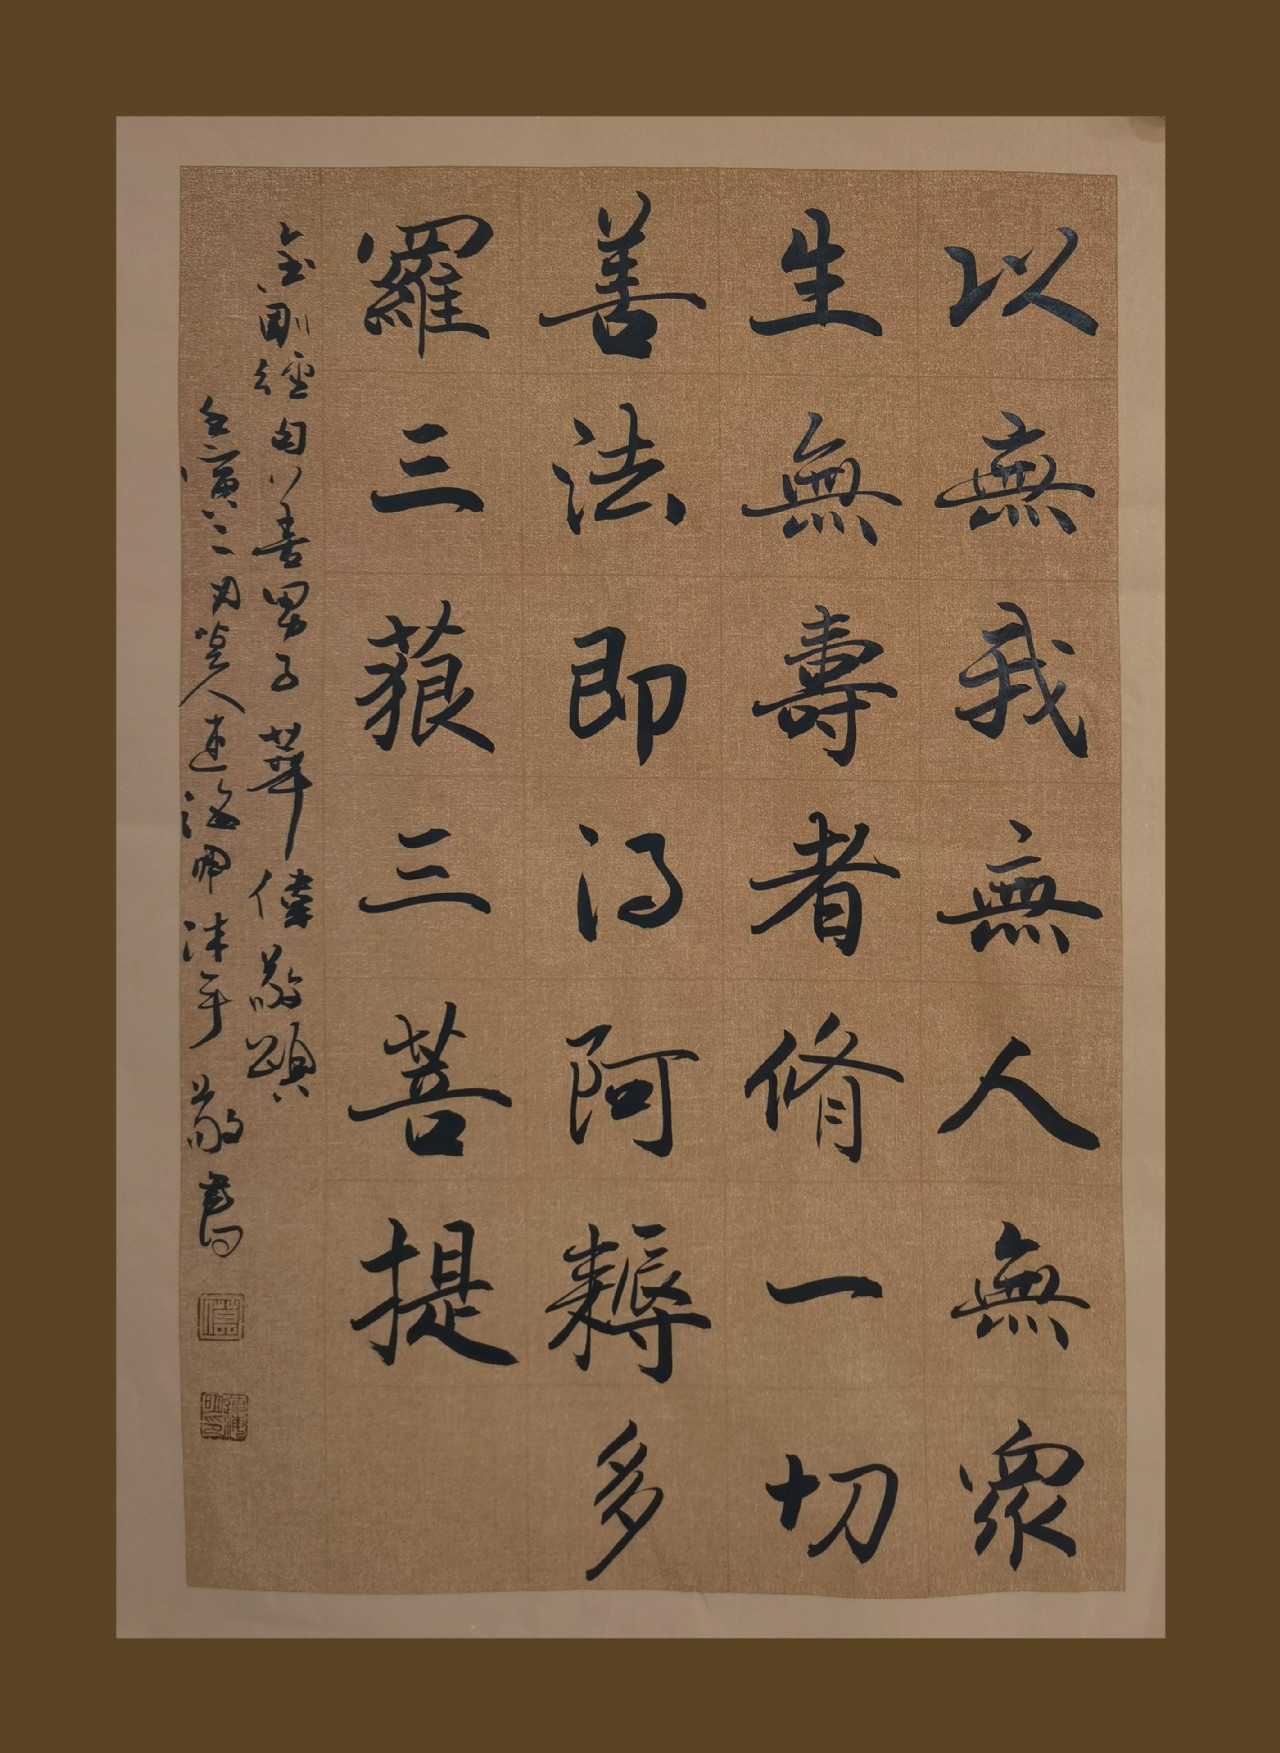 以無我無人無眾
生無壽者脩一切
善法即得阿耨多
羅三藐三菩提
金剛經句 善男子華偉敬題
壬寅 人 敬書